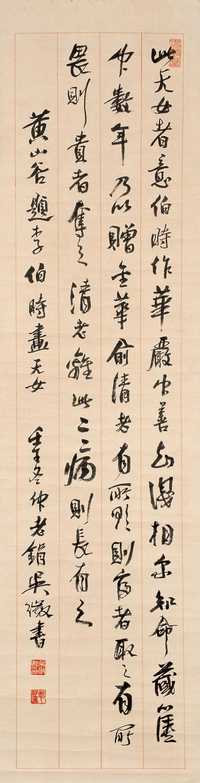 此天女者意伯時作華嚴中善知識相余知命藏篋
中數年乃以贈金華俞清老有所則者取之有所
畏則貴者奪之清老離此二病則長有之
黃山谷題李伯時畫天女 冬仲老鋗吳徵書